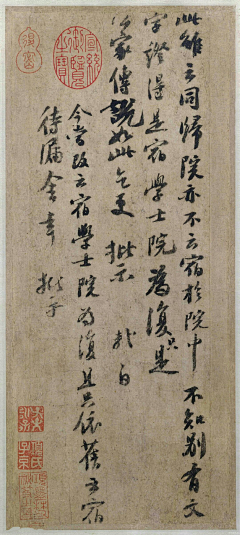 此雖云同歸院亦不云宿於院中不知別有文
字證得是宿學士院為復只是
家傳說如此乞更批示 軾白
今嘗改云宿學士院為復且只依舊云宿
待漏舍幸批示